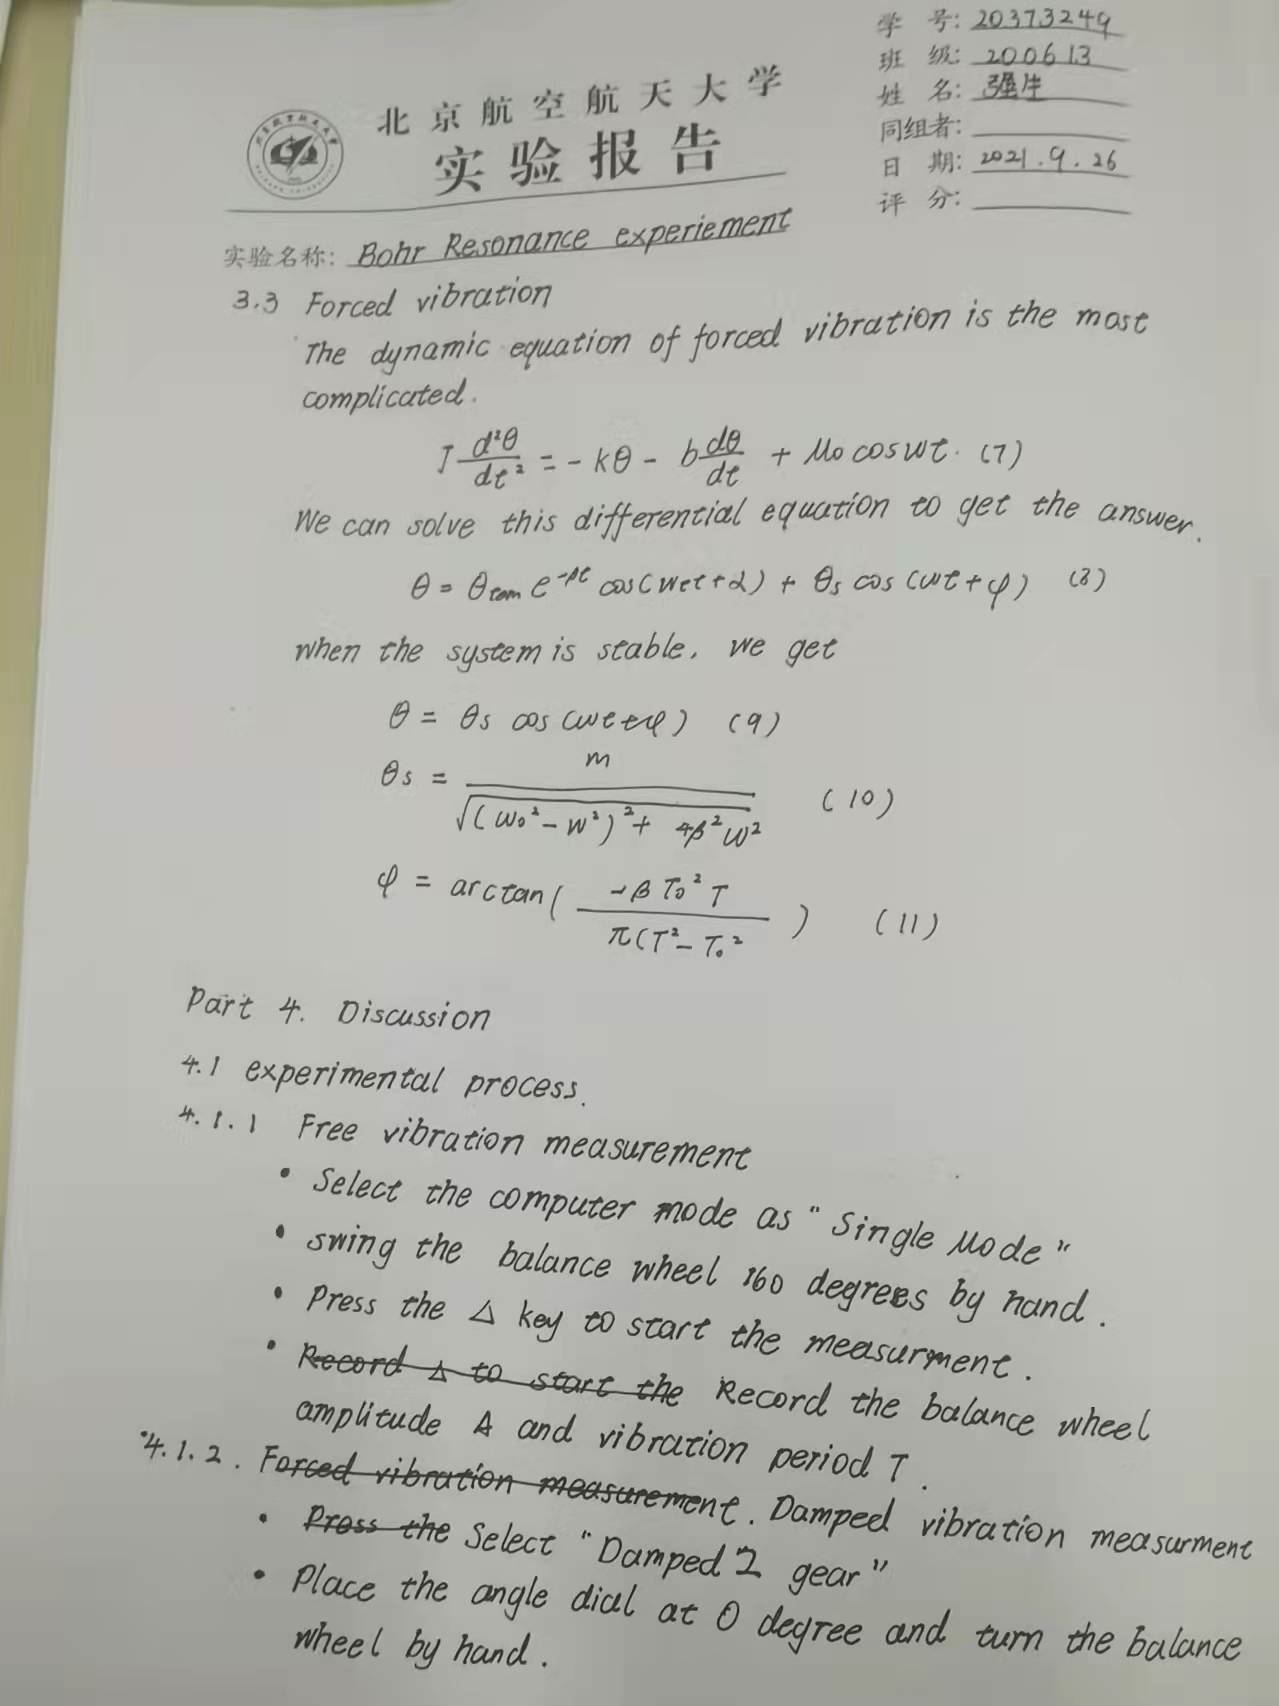 学 号: 20373249
班 级: 200613
姓 名: 强生
同组者:
日 期: 2021.9.26
评 分:
北京航空航天大学
实验报告
实验名称: Bohr Resonance experiement
3.3 Forced vibration
The dynamic equation of forced vibration is the most
complicated.
J d²θ/dt² = -kθ - b dθ/dt + M₀ cos ωt. (7)
We can solve this differential equation to get the answer.
θ = θ e^-βt cos(ωt+α) + θs cos(ωt+φ) (8)
when the system is stable. we get
θ = θs cos(ωt+φ) (9)
θs = m / √(ω₀²-ω²)²+4β²ω² (10)
φ = arctan( -βT₀²T / π(T²-T₀² ) (11)
Part 4. Discussion
4.1 experimental process.
4.1.1 Free vibration measurement
• Select the computer mode as "Single Mode"
• swing the balance wheel 160 degrees by hand.
• Press the △ key to start the measurment.
• Record △ to start the Record the balance wheel
amplitude A and vibration period T.
4.1.2. Forced vibration measurement. Damped vibration measurment
• Press the Select "Damped 2 gear"
• Place the angle dial at 0 degree and turn the balance
wheel by hand.